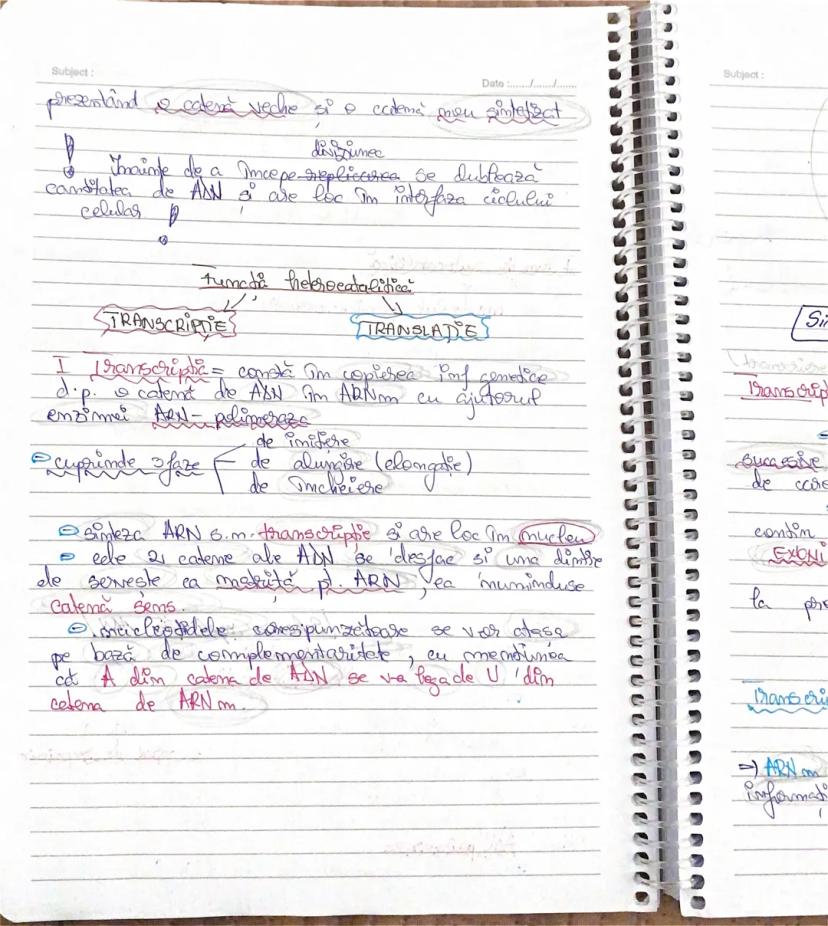 Subject :
Date :....../....../......
prezentând o catenă veche și o catenă nou sintetizat
diviziunea
! Înainte de a începe replicarea se dublează
cantitatea de ADN și are loc în interfaza ciclului
celular !
Funcția heterocatalitică
TRANSCRIPȚIE TRANSLAȚIE
I Transcripția = constă în copierea inf genetice
d.p. o catenă de ADN în ARNm cu ajutorul
enzimei ARN-polimeraza
de inițiere
cuprinde 3 faze de alungire (elongație)
de încheiere
sinteza ARN s.m. transcripție și are loc în nucleu
cele 2 catene ale ADN se desfac și una dintre
ele servește ca matriță pt. ARN, ea numinduse
catenă sens.
nucleotidele corespunzătoare se vor atașa
pe bază de complementaritate, cu mențiunea
că A din catena de ADN se va lega de U din
catena de ARNm.
Subject :
Si
Transcrip
succesive
de
contin
EXONI
la
Transcri
=) ARNm
informați